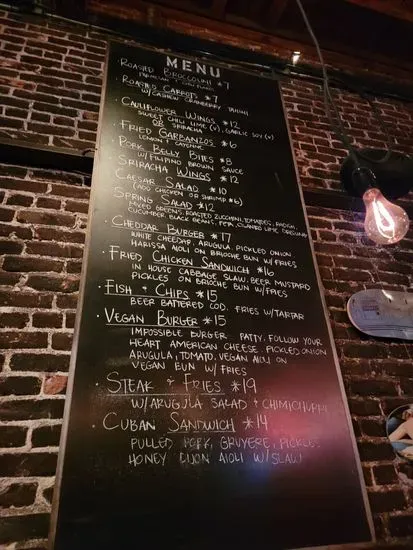 MENU
· ROASTED BROCCOLINI *7
PARMESAN + CHILI FLAKES
· ROASTED CARROTS *7
W/ CASHEW CRANBERRY TAHINI
· CAULIFLOWER WINGS *12
SWEET CHILI LIME (V), GARLIC SOY (V)
OR SRIRACHA
· FRIED GARBANZOS *6
LEMON + CAYENNE
· PORK BELLY BITES *8
W/ FILIPINO BROWN SAUCE
· SRIRACHA WINGS *12
· CAESAR SALAD *10
(ADD CHICKEN OR SHRIMP *6)
· SPRING SALAD *12
MIXED GREENS, ROASTED ZUCCHINI, TOMATOES, RADISH,
CUCUMBER, BLACK BEANS, FETA, CILANTRO LIME DRESSING
· CHEDDAR BURGER *17
WHITE CHEDDAR, ARUGULA, PICKLED ONION
HARISSA AIOLI ON BRIOCHE BUN W/ FRIES
· FRIED CHICKEN SANDWICH *16
IN HOUSE CABBAGE SLAW, BEER MUSTARD
PICKLES ON BRIOCHE BUN W/ FRIES
· FISH + CHIPS *15
BEER BATTERED COD, FRIES W/ TARTAR
· VEGAN BURGER *15
IMPOSSIBLE BURGER PATTY, FOLLOW YOUR
HEART AMERICAN CHEESE, PICKLED ONION
ARUGULA, TOMATO, VEGAN AIOLI ON
VEGAN BUN W/ FRIES
· STEAK + FRIES *19
W/ ARUGULA SALAD + CHIMICHURRI
· CUBAN SANDWICH *14
PULLED PORK, GRUYERE, PICKLES
HONEY DIJON AIOLI W/ SLAW